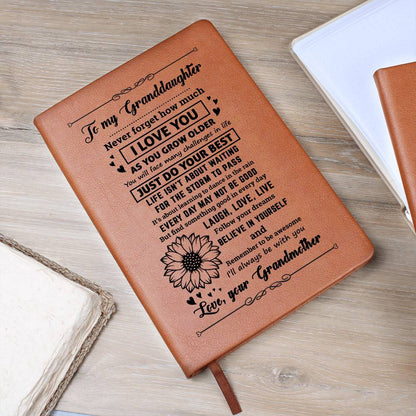 To my Granddaughter
Never forget how much
I LOVE YOU
AS YOU GROW OLDER
You will face many challenges in life
JUST DO YOUR BEST
LIFE ISN'T ABOUT WAITING
FOR THE STORM TO PASS
It's about learning to dance in the rain
EVERY DAY MAY NOT BE GOOD
But find something good in every day
LAUGH, LOVE, LIVE
Follow your dreams
BELIEVE IN YOURSELF
and
Remember to be awesome
I'll always be with you
Love, your Grandmother